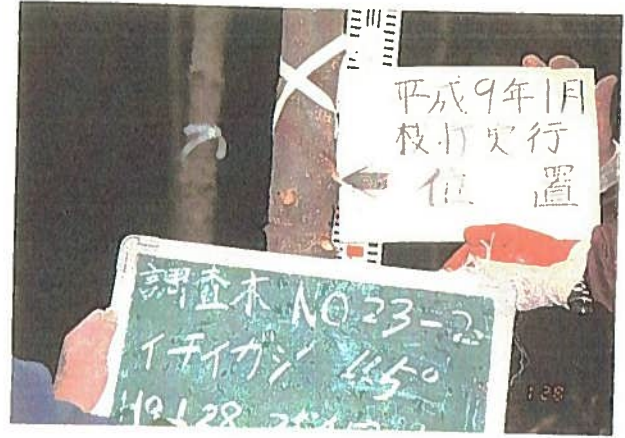 平成9年1月
枝打実行
位 置
調査木 NO 23-2
イチイガシ
H9 1.28
1 28